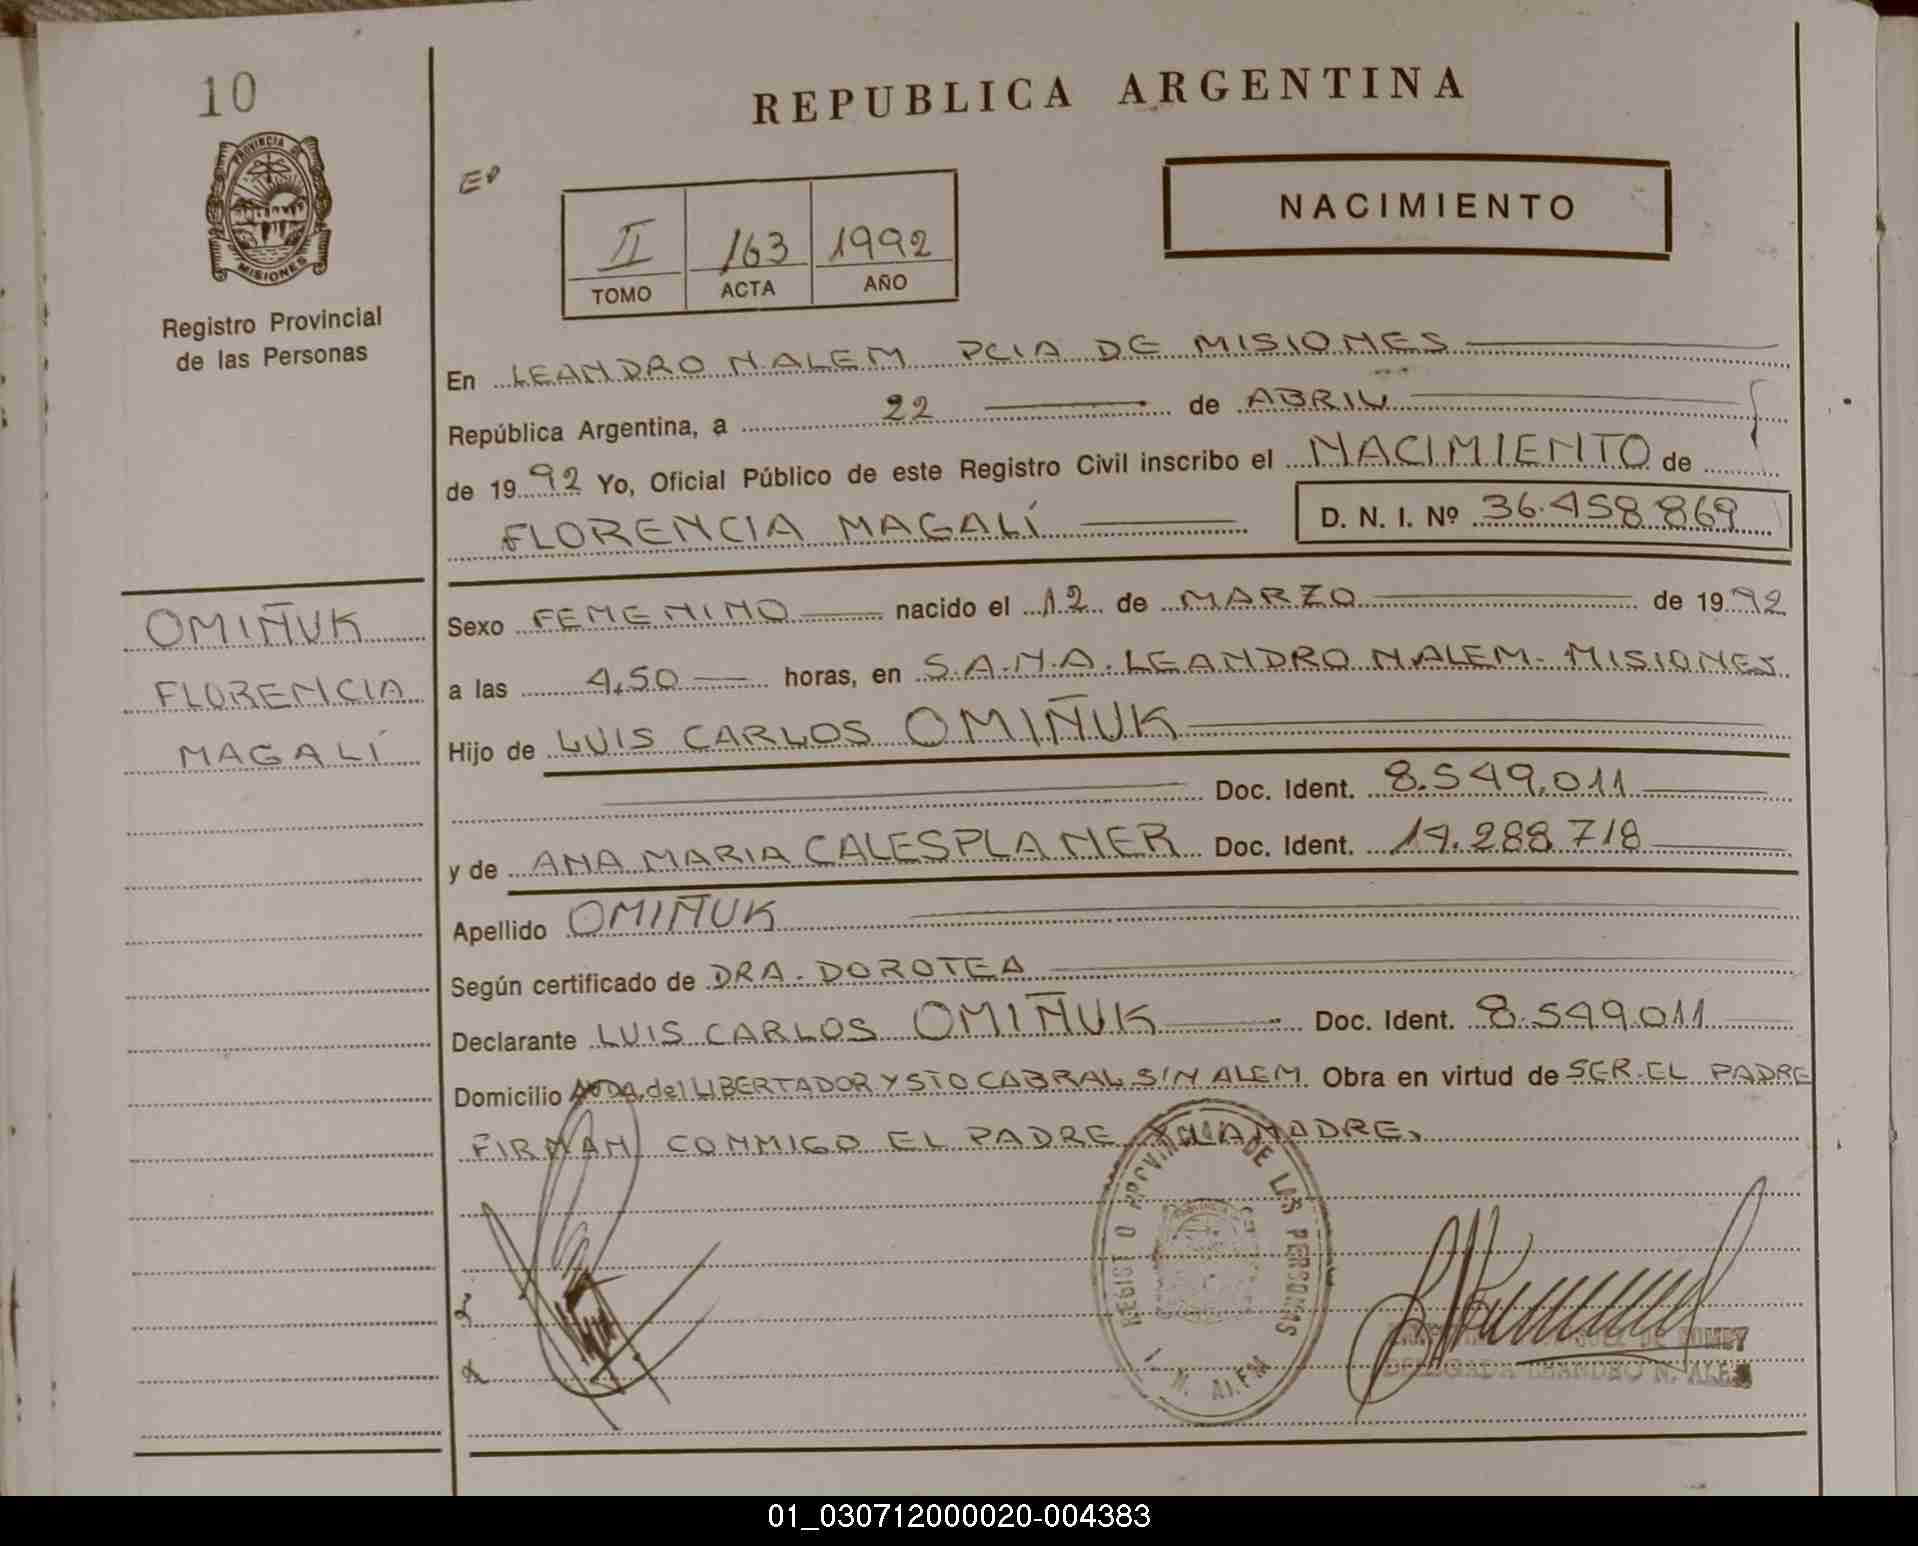 10
REPUBLICA ARGENTINA
PROVINCIA DE
MISIONES
Registro Provincial
de las Personas
NACIMIENTO
II 163 1992
TOMO ACTA AÑO
En LEANDRO N. ALEM PCIA DE MISIONES
República Argentina, a 22 de ABRIL
de 1992 Yo, Oficial Público de este Registro Civil inscribo el NACIMIENTO de
FLORENCIA MAGALÍ D. N. I. Nº 36.458.869
OMIÑUK
FLORENCIA
MAGALÍ
Sexo FEMENINO nacido el 12 de MARZO de 1992
a las 4,50 horas, en S.A.N.A. LEANDRO N. ALEM - MISIONES
Hijo de LUIS CARLOS OMIÑUK
Doc. Ident. 8.549.011
y de ANA MARIA CALESPLANER Doc. Ident. 14.288.718
Apellido OMIÑUK
Según certificado de DRA. DOROTEA
Declarante LUIS CARLOS OMIÑUK Doc. Ident. 8.549.011
Domicilio AVDA. del LIBERTADOR Y STO CABRAL S/N ALEM Obra en virtud de SER EL PADRE
FIRMAN CONMIGO EL PADRE Y LA MADRE.
REGISTRO PROVINCIAL DE LAS PERSONAS
L. N. ALEM
DELEGADA LEANDRO N. ALEM
01_030712000020-004383